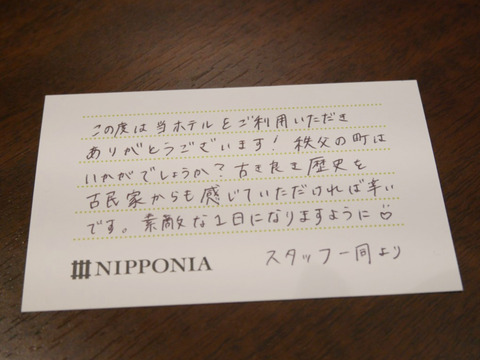 この度は当ホテルをご利用いただき
ありがとうございます！秩父の町は
いかがでしょうか？古き良き歴史を
古民家からも感じていただければ幸い
です。素敵な1日になりますように♡
NIPPONIA スタッフ一同より